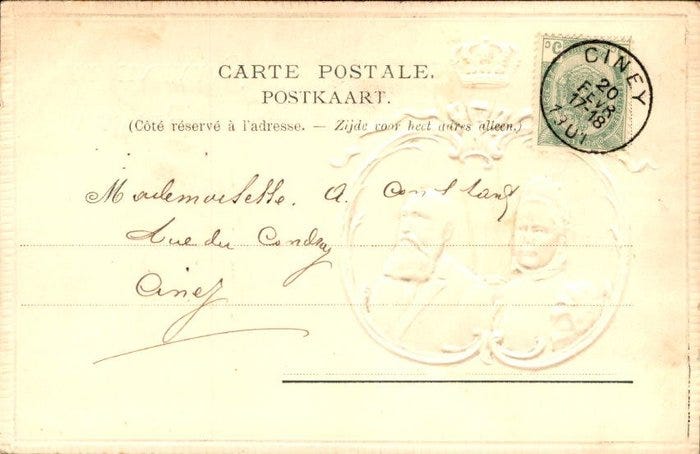 CARTE POSTALE.
POSTKAART.
(Côté réservé à l'adresse. — Zijde voor heet adres alleen.)
CINEY
20
FEVR
17-18
1901
Mademoiselle. A. Constant
Rue du Condroz
Ciney